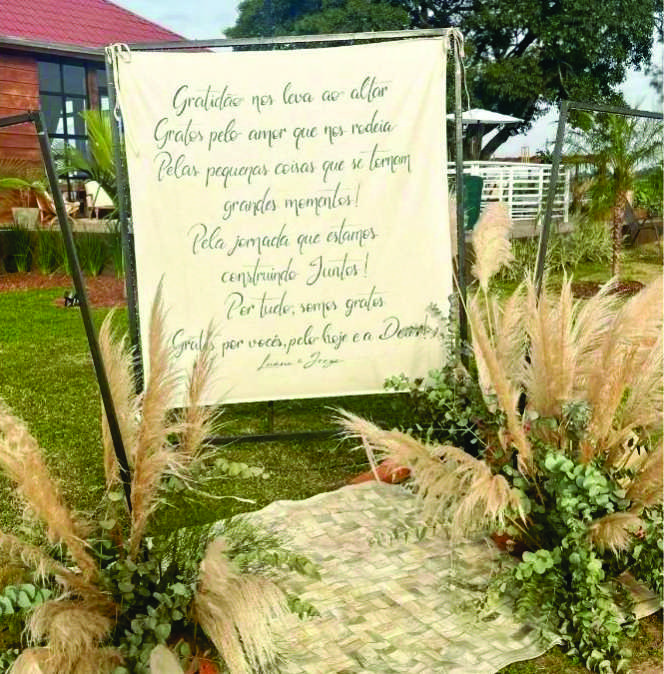 Gratidão nos leva ao altar
Gratos pelo amor que nos rodeia
Pelas pequenas coisas que se tornam
grandes momentos!
Pela jornada que estamos
construindo Juntos!
Por tudo, somos gratos
Gratos por vocês, pelo hoje e a Deus!
e Jorge